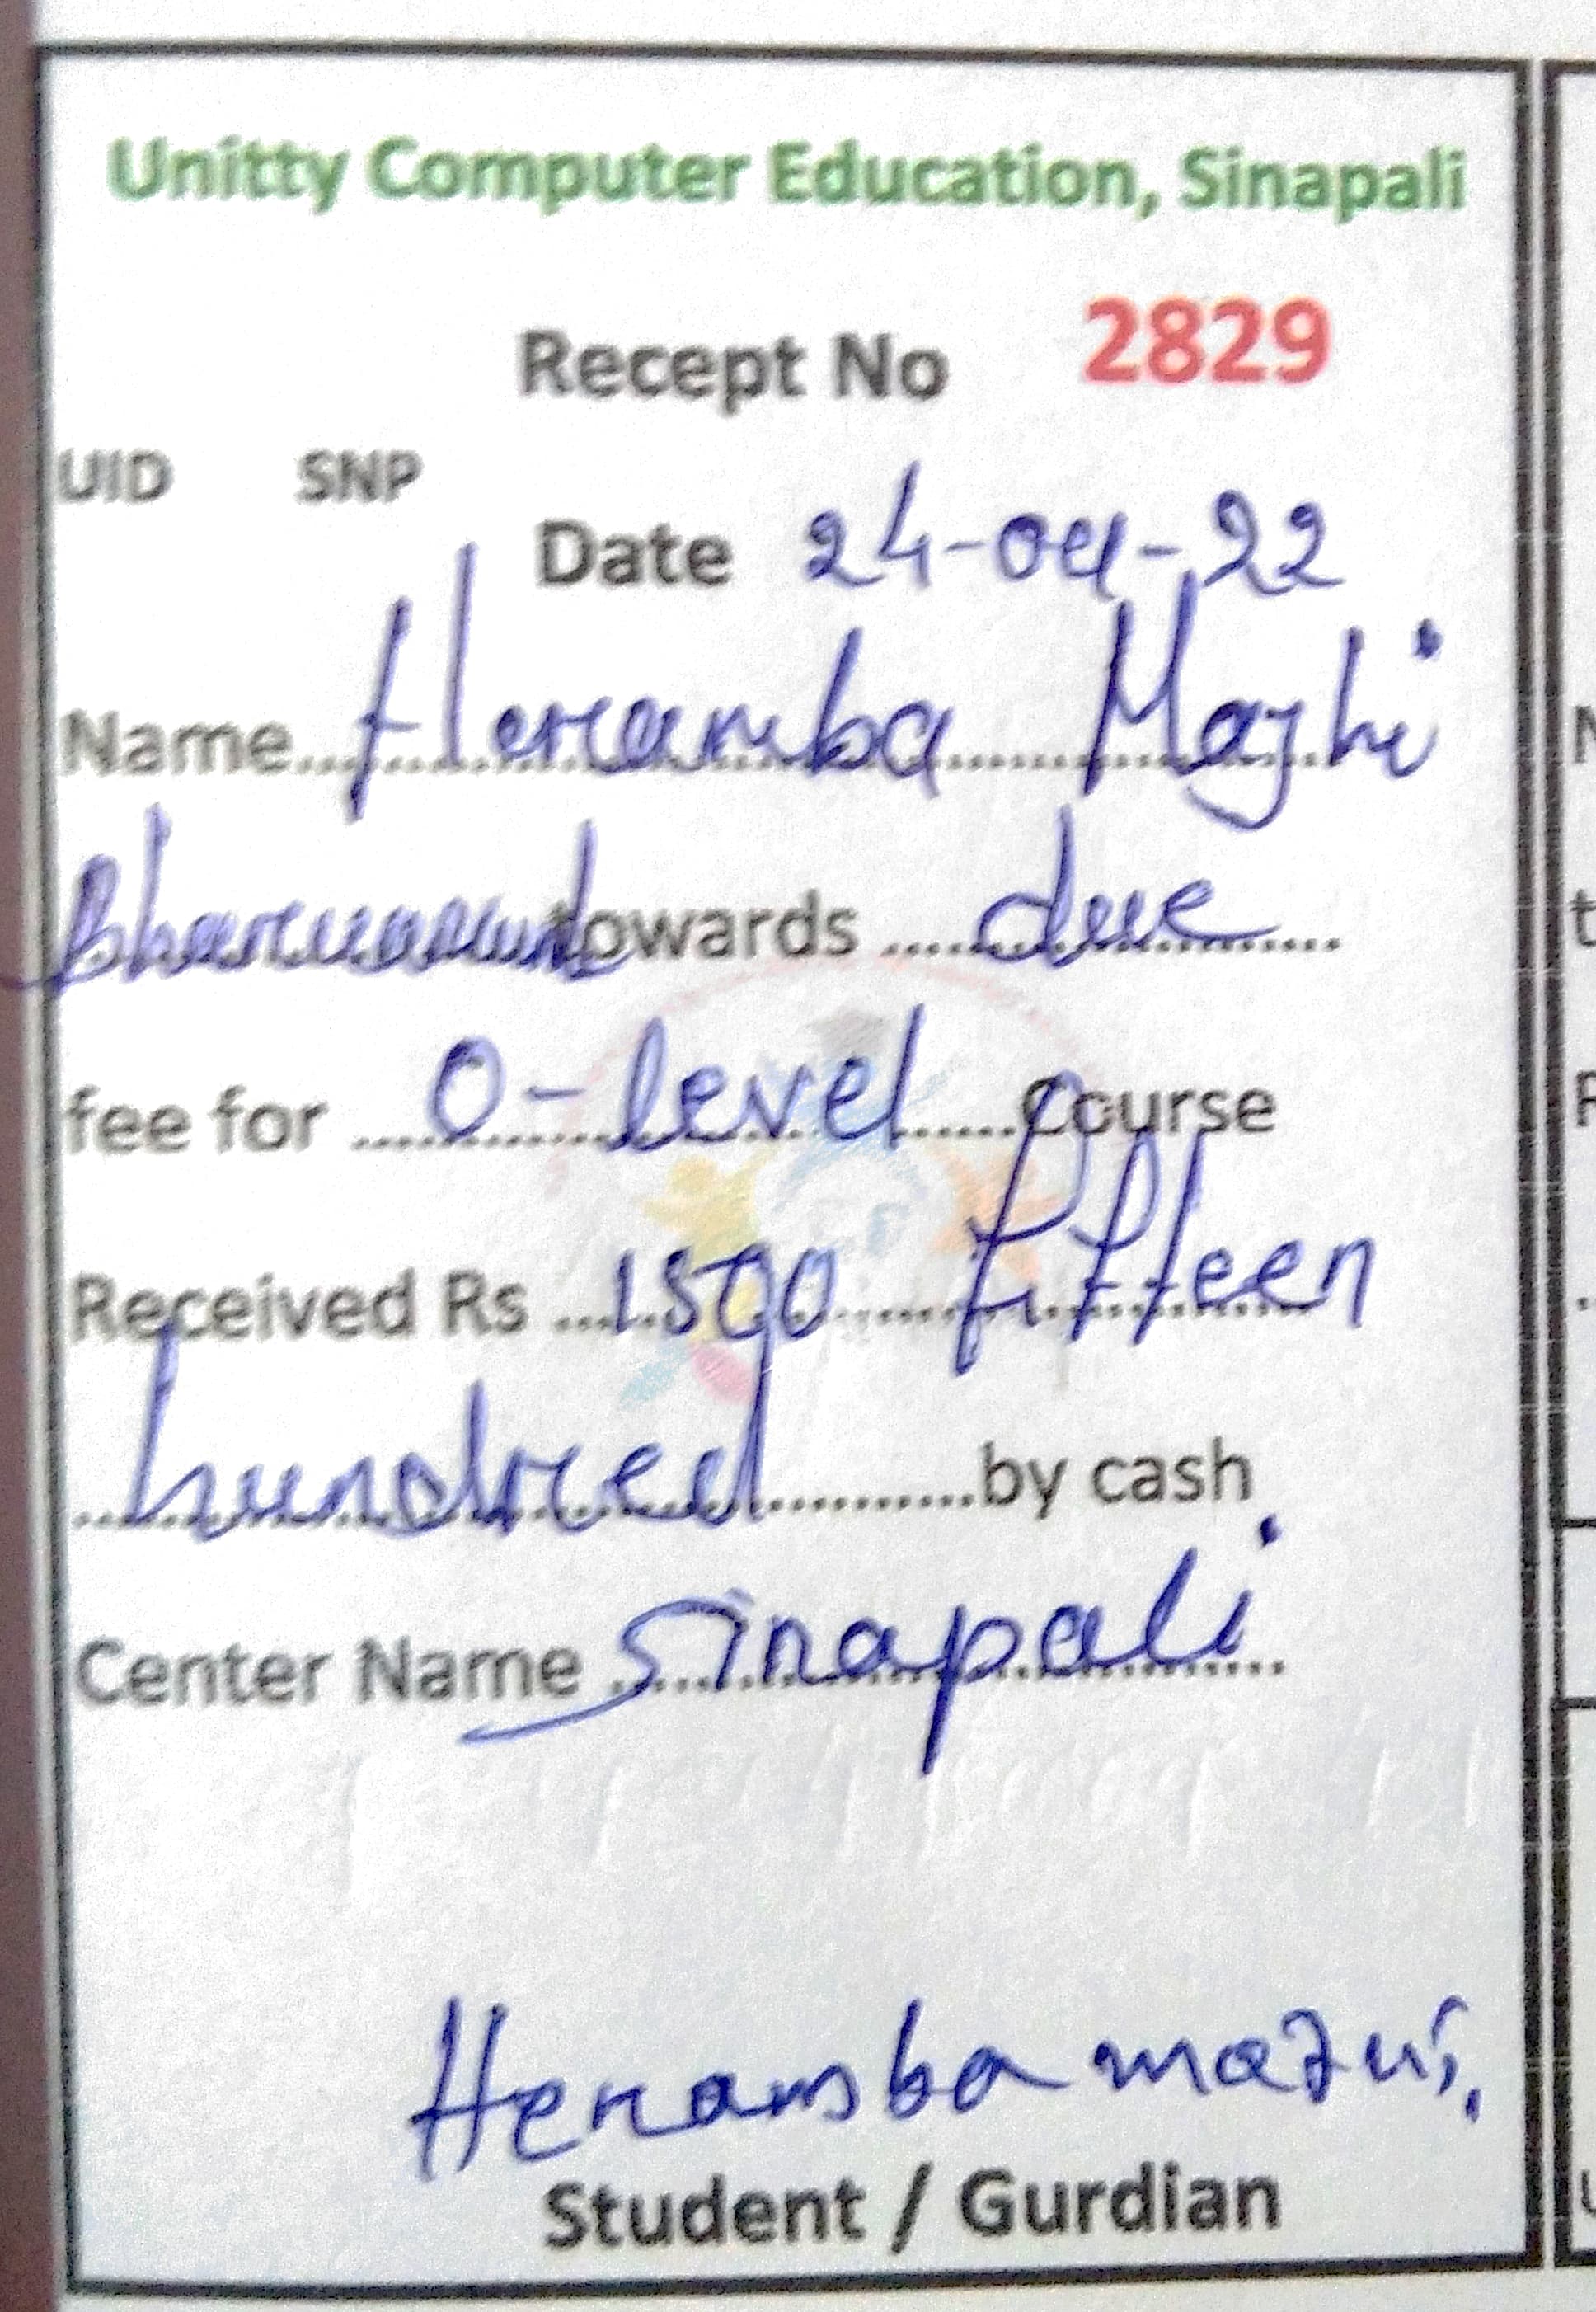 Unitty Computer Education, Sinapali
Recept No 2829
UID SNP
Date 24-04-22
Name Heramba Majhi
towards due
fee for O-level Course
Received Rs 1500 fifteen
hundred by cash
Center Name Sinapali
Heramba
Student / Gurdian